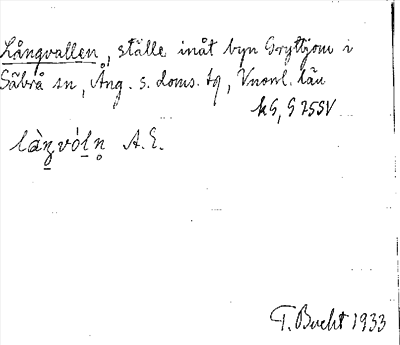 Långvallen, ställe inåt byn Gryttjom i
Säbrå sn, Ång. s. doms. tg, Vnorrl. län
kS, S 25SV
A. E.
T. Bucht 1933